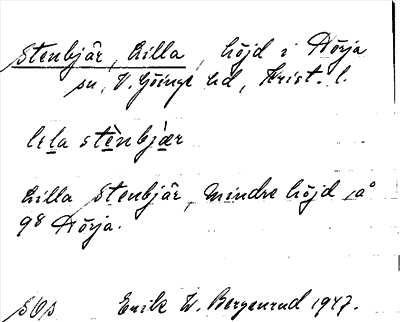 Stenbjär, Lilla, höjd i Nörja
sn, V. Göinge hd, Krist. l.
lela stènbjær
Lilla Stenbjär, mindre höjd, å
98 Nörja.
SOs Erik W. Bergenrud 1947.